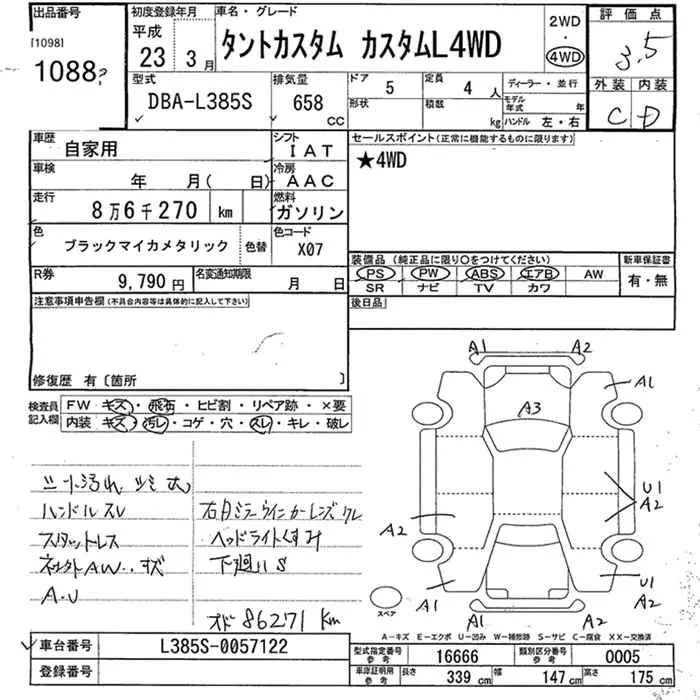 出品番号
[1098]
1088
初度登録年月
平成
23年 3月
車名・グレード
タントカスタム カスタムL4WD
2WD
・
4WD
評価点
3.5
外装 内装
C D
型式
DBA-L385S
排気量
658 CC
ドア
5
定員
4人
形状
積載 kg
ディーラー・並行
モデル年式 年
ハンドル 左・右
車歴
自家用
シフト
IAT
車検
年 月( 日)
冷房
AAC
走行
8万6千270 km
燃料
ガソリン
色
ブラックマイカメタリック
色替
色コード
X07
R券
9,790円
名変通知期限
月 日
セールスポイント(正常に機能するものに限ります)
★4WD
装備品(純正品に限り○をつけてください)
PS PW ABS エアB AW
SR ナビ TV カワ
新車保証書
有・無
後日品
注意事項申告欄(不具合内容等は具体的に記入して下さい)
修復歴 有〔箇所 〕
検査員記入欄
FW キズ・飛石・ヒビ割・リペア跡・×要
内装 キズ・汚れ・コゲ・穴・スレ・キレ・破レ
シート汚れ シミ 大
ハンドルスレ
スタットレス
AW キズ
A.U
右ミラーウインカーレンズワレ
ヘッドライトくすみ
下廻りS
オド86271Km
A1 A2
A1
A3
U1
A2
A2
U1
A1
A1 A2
スペア
A－キズ E－エクボ U－凹み W－補修跡 S－サビ C－腐食 XX－交換済
車台番号
L385S-0057122
登録番号
型式指定番号 参考
16666
類別区分番号 参考
0005
車庫証明用 参考
長さ 339 cm
幅 147 cm
高さ 175 cm